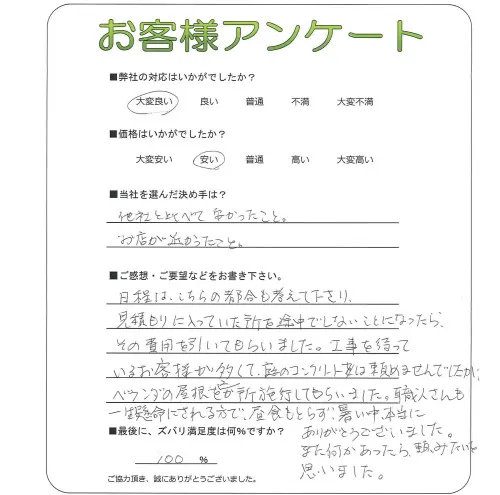 お客様アンケート
■弊社の対応はいかがでしたか？
大変良い 良い 普通 不満 大変不満
■価格はいかがでしたか？
大変安い 安い 普通 高い 大変高い
■当社を選んだ決め手は？
他社と比べて安かったこと。
お店が近かったこと。
■ご感想・ご要望などをお書き下さい。
日程は、こちらの都合も考えて下さり、
見積もりに入っていた所を途中でしないことになったら、
その費用を引いてもらいました。工事を待って
いるお客様が多くて、庭のコンクリート事は頼めませんでしたが、
ベランダの屋根をか所施行してもらいました。職人さんも
一生懸命にされる方で、昼食もとらず、暑い中、本当に
ありがとうございました。
また何かあったら、頼みたいと
思いました。
■最後に、ズバリ満足度は何%ですか？
100 %
ご協力頂き、誠にありがとうございました。